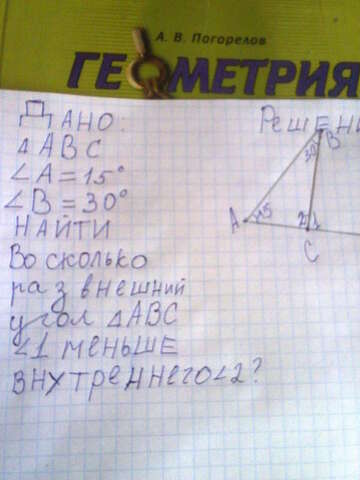 А. В. Погорелов
ГЕОМЕТРИЯ
ДАНО:
РЕШЕНИ
△ABC
∠A = 15°
∠B = 30°
НАЙТИ
Во сколько
раз внешний
угол △ABC
∠1 меньше
внутреннего ∠2?
B
30°
A
15
2
1
C